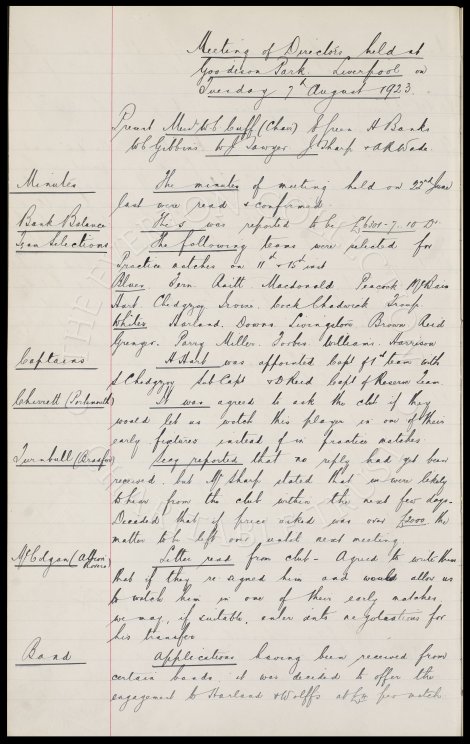 Meeting of Directors held at
Goodison Park Liverpool on
Tuesday 7th August 1923.
Present Messrs W C Cuff (Chair) E Green H Banks
W C Gibbins W J Sawyer J Sharp & A R Wade
Minutes The minutes of meeting held on 22nd June
last were read & confirmed.
Bank Balance This was reported to be £6301-7. 10 Dr
Team Selections The following teams were selected for
Practice matches on 11th & 15th inst
Blues. Fern Raitt Macdonald Peacock McBain
Hart. Chedgzoy Irvine Cock Chadwick Troup
Whites. Harland. Downs Livingstone Brown Reid
Grenyer. Parry Miller. Forbes Williams. Harrison
Captains H Hart was appointed Capt of 1st team with
S Chedgzoy Sub Capt & D Reid Capt of Reserve Team.
Cherrett (Portsmouth) It was agreed to ask the club if they
would let us watch this player in one of their
early fixtures instead of in practice matches
Turnbull (Bradford) Secy reported that no reply had yet been
received, but Mr Sharp stated that we were likely
to hear from the club within the next few days.
Decided that if price asked was over £2000 the
matter to be left over until next meeting.
McColgan (Albion Rovers) Letter read from club - Agreed to write them
that if they re-signed him and would allow us
to watch him in one of their early matches
we may, if suitable, enter into negotiations for
his transfer
Band Applications having been received from
certain bands, it was decided to offer the
engagement to Harland & Wolffs at per match